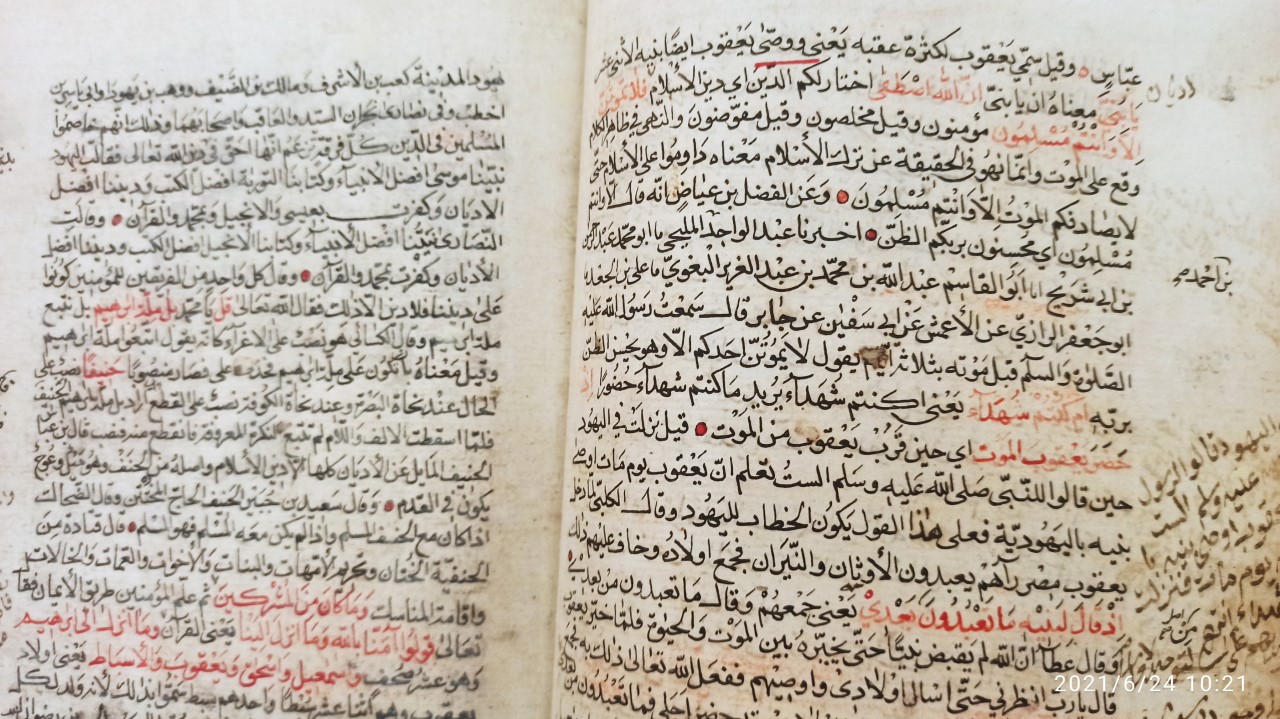 عبّاس وقيل سمّي يَعْقوب لكثرة عقبه يَعْنى ووصّى يَعْقوب ايضًا بنيه الأثنى عشر
يا بَنِيَّ معناه ان يا بنيّ انّ الله اصْطَفى اختار لكم الدّين اي دين الأسلام فلا تموتنّ
الّا وانتم مُسْلمون مؤمنون وقيل مخلصون وقيل مفوّضون والنّهي في ظاهر الكلام
وقع على الموت وانّما نهوا في الحقيقة عن ترك الأسْلام معناه داوموا على الأسلام حتى
لا يصادفكم الموت الّا وَانْتم مُسْلمُونَ وَعَن الفضل بن عياض انه قال الّا وانتم
مُسْلمُون اي محسنون بربّكم الظنّ اخبرنا عبد الواحد المليحي انا ابو محمّد عبد الرحمن
بن ابي شريح انا ابَوُ القاسم عبد الله بن محمّد بن عبد العزيز البغويّ نا على بن الجعد نا
ابو جعفر الرازيّ عن الأعمش عن ابي سفين عن جابر قال سمعت رسول الله عليه
الصّلوة والسلم قبل مَوْته بثلاثة ايّام يقول لا يموتنّ احدكم الّا وهو يحسن الظنّ
بربّه ام كنتم شهدآء يَعْنى اكنتم شُهَدآء يريد ما كنتم شهدآء حضُورًا اذ
حَضَر يَعْقوبَ الموت اي حين قرُب يَعْقوب من الموت قيل نزلت في اليهُود
حين قالوا للنّبىّ صلى الله عليه وسَلم الست تعلم انّ يَعْقوب يوم مات اوصى
بنيه باليهُوديّة فعلى هذا القول يكون الخطاب لليَهُود وقال الكلبيّ لمّا دخل
يعقوب مصْر رآهم يعبدون الأوثان والنّيران فجمع اولاده وخاف عليهم ذلك
اذ قال لبَنِيه مَا تَعْبُدُونَ بَعْدِيْ يَعْنى جَمعهُمْ وَقال مَا تعبدون من بعدي
وقال عطآ انّ الله لم يقبض نبيًّا حتى يخيّره بين الموت والحيوة فلمّا خيّر يعقوب
قال يارب انظرني حتى اسال اولادى واوصيهم ففعل الله تعالى ذلك به
بن احمد صح
يهود المدينة كعب بن الأشرف ومالك بن الضّيف ووهب بن يهودا وابي ياسر بن
اخطب وفي نصارى نجران السيّد والعاقب واصحابهما وذلك انهم خاصموا
المسْلمين في الدّين كلّ فرقة تزعم انّها احقّ في دين الله تعالى فقالت اليهود
نبيّنا موسى افضل الانبيآء وكتابنا التورية افضل الكتب وديننا افضل
الاديان وكفرت بعيسى والانجيل ومحمّد والقرآن وقالت
النّصارى نبيّنا افضل الأنبيآء وكتابنا الأنجيل افضل الكتب وديننا افضل
الأديان وكفرت بمحمّد والقرآن وقال كل واحد من الفريقين للمُؤمنين كونوا
على ديننا فلا دين الّا ذلك فقال الله تعالى قل يا محمّد بل ملّة ابرهيم بل نتبع
ملّة ابرهيم وقال الكسائى هو نصب على الاغراء كانّه يقول اتبعوا ملّة ابرهيم
وقيل معناه بل نكون على ملّة ابرهيم فصار منصوبًا حنيفًا نصب على
الحال عند نحاة البصرة وعند نحاة الكوفة نصب على القطع اراد بل ملّة ابرهيم الحنيف
فلمّا اسقطت الالف واللّام لم تتبع النكرة المعرفة فانقطع منه فنصب قال بن عبّاس
الحنيف المايل عن الأديان كلها الى دين الأسلام واصله من الحنف وهو ميل وعوج
يكون في القدم وقال سعيد بن جبير الحنيف الحاج المختتن وقال الضّحاك
اذا كان مع الحنيف المسلم واذا لم يكن معه المسلم فهو المسلم قال قتادة من
الحنفية الختان وتحريم الأمّهات والبنات والأخوات والعمات والخالات
واقامة المناسك وَمَا كان مِن المُشركينَ ثم علّم المؤمنين طريق الأيمان فقال
تعالى قولوا آمنّا بالله وما انزل الينا يعنى القرآن وما انزل الى ابرهيم
وهو عشر صحف واسمعيل واسحق ويَعقوب والأسباط يعنى اولاد
يعقوب وهم اثنا عشر سبطًا واحدهم سبط سمّوا بذلك لأنه ولد لكل
2021/6/24 10:21